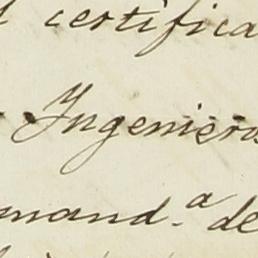 certifica
Ingenieros
mand.a de